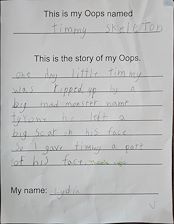 This is my Oops named
timmy skeleton
This is the story of my Oops.
one day little timmy
was ripped up by a
big mad monster name
tyrone he left a
big scar on his face
So I gave timmy a part
of his face.
My name: Lydia